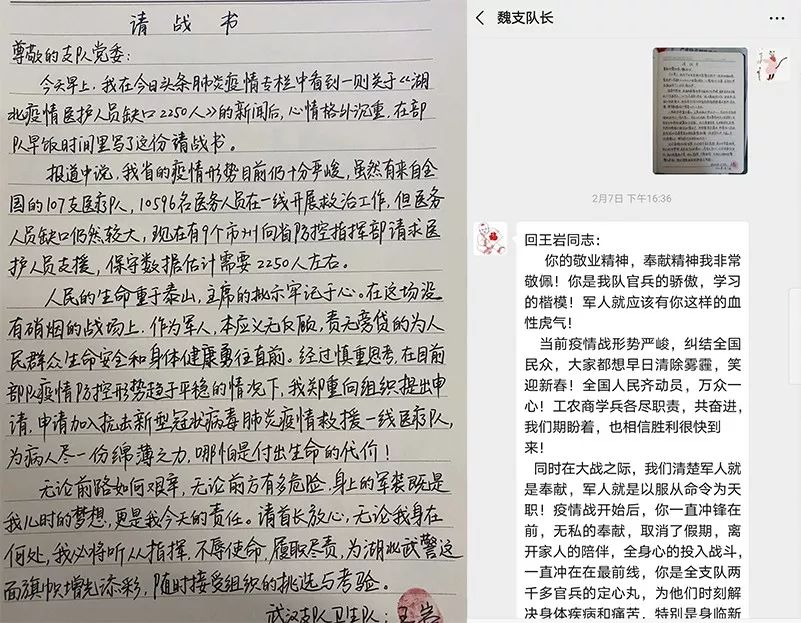 请战书
尊敬的支队党委：
今天早上，我在今日头条肺炎疫情专栏中看到一则关于《湖
北疫情医护人员缺口2250人》的新闻后，心情格外沉重，在部
队早饭时间里写了这份请战书。
报道中说，我省的疫情形势目前仍十分严峻，虽然有来自全
国的107支医疗队，10596名医务人员在一线开展救治工作，但医务
人员缺口仍然较大，现在有9个市州向省防控指挥部请求医
护人员支援，保守数据估计需要2250人左右。
人民的生命重于泰山，主席的批示牢记于心。在这场没
有硝烟的战场上，作为军人，本应义无反顾，责无旁贷的为人
民群众生命安全和身体健康勇往直前。经过慎重思考，在目前
部队疫情防控形势趋于平稳的情况下，我郑重向组织提出申
请，申请加入抗击新型冠状病毒肺炎疫情救援一线医疗队，
为病人尽一份绵薄之力，哪怕是付出生命的代价！
无论前路如何艰辛，无论前方有多危险，身上的军装既是
我儿时的梦想，更是我今天的责任。请首长放心，无论我身在
何处，我必将听从指挥，不辱使命，履职尽责，为湖北武警这
面旗帜增光添彩，随时接受组织的挑选与考验。
武汉支队卫生队：王岩
魏支队长
2月7日 下午16:36
回王岩同志：
你的敬业精神，奉献精神我非常
敬佩！你是我队官兵的骄傲，学习
的楷模！军人就应该有你这样的血
性虎气！
当前疫情战形势严峻，纠结全国
民众，大家都想早日清除雾霾，笑
迎新春！全国人民齐动员，万众一
心！工农商学兵各尽职责，共奋进，
我们期盼着，也相信胜利很快到
来！
同时在大战之际，我们清楚军人就
是奉献，军人就是以服从命令为天
职！疫情战开始后，你一直冲锋在
前，无私的奉献，取消了假期，离
开家人的陪伴，全身心的投入战斗，
一直冲在在最前线，你是全支队两
千多官兵的定心丸，为他们时刻解
决身体疾病和痛苦，特别是身临新